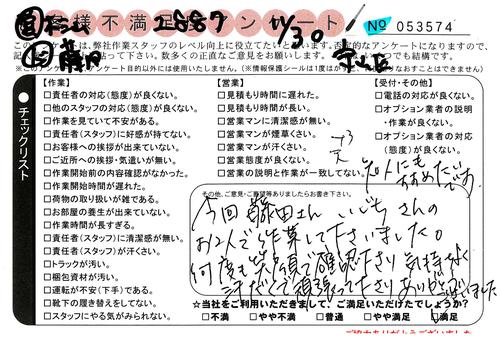 お客様不満足度アンケート
2887
11/30
№ 053574
このアンケートは、弊社作業スタッフのレベル向上に役立てたいと
チェックリスト
【作業】
□責任者の対応(態度)が良くない。
□他のスタッフの対応(態度)が良くない。
□作業を見ていて不安がある。
□責任者(スタッフ)に好感が持てない。
□お客様への挨拶が出来ていない。
□ご近所への挨拶・気遣いが無い。
□作業開始前の内容確認がなかった。
□作業開始時間が遅れた。
□荷物の取り扱いが雑である。
□お部屋の養生が出来ていない。
□作業時間が長すぎる。
□責任者(スタッフ)に清潔感が無い。
□責任者(スタッフ)が汗くさい。
□トラックが汚い。
□梱包資材が汚い。
□運転が不安(下手)である。
□靴下の履き替えをしてない。
□スタッフにやる気がみられない。
【営業】
□見積もり時間に遅れた。
□見積もり時間が長い。
□営業マンに清潔感が無い。
□営業マンが煙草くさい。
□営業マンが汗くさい。
□営業態度が良くない。
□営業の説明と作業が一致してない。
【受付・その他】
□電話の対応が良くない。
□オプション業者の説明
・作業が良くない。
□オプション業者の対応
(態度)が良くない。
その他、ご意見・ご要望等ありましたらお書き下さい。
今回藤田さん いいぢさんの
お2人で作業して下さいました。
何度も笑顔で確認下さり 気持ちよく
汗だくで頑張って下さり ありがとうございました
知人にも
すすめたい
です
☆当社をご利用いただきまして、ご満足いただけたでしょうか?
□不満 □やや不満 □普通 □やや満足 □満足
ご協力ありがとうございました